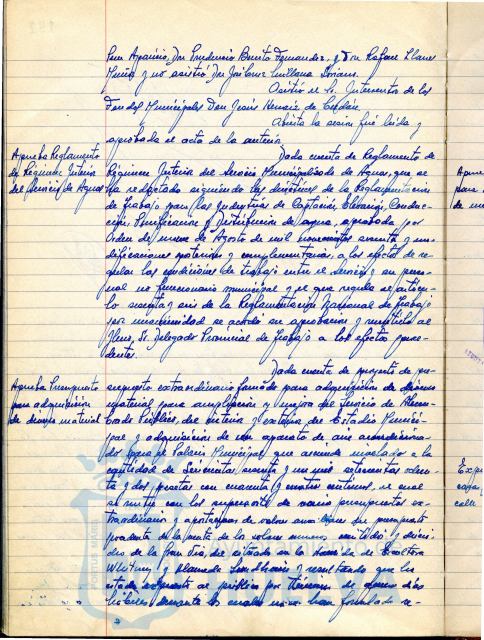 Pern Aparicio, Don Prudencio Benito Fernandez, y Don Rafael Llanes
Muñiz y no asistió Don José Cruz
Asistió el Sr. Interventor de los
Fondos Municipales Don Jesús
Abierta la sesión fué leida y
aprobada el acta de la anterior.
Aprueba Reglamento
de Régimen Interior
del Servicio de Aguas
Dada cuenta de Reglamento de
Régimen Interior del Servicio Municipalizado de Aguas, que se
ha redactado siguiendo las directrices de la Reglamentación
de Trabajo para las Industrias de Captación, Elevación, Conduc-
ción, Purificación y Distribución de agua, aprobada por
Orden de nueve de Agosto de mil novecientos sesenta y mo-
dificaciones posteriores y complementarias, a los efectos de re-
gular las condiciones de trabajo entre el servicio y su perso-
nal no funcionario municipal y el que regula el artícu-
lo sesenta y seis de la Reglamentación Nacional de Trabajo
por unanimidad se acordó su aprobación y remitirlo al
Iltmo. Sr. Delegado Provincial de Trabajo a los efectos proce-
dentes.
Aprueba Presupuesto
para adquisición
de diverso material
Dada cuenta de proyecto de pre-
supuesto extraordinario formado para adquisición de diverso
material para ampliación y mejora del Servicio de Alum-
brado Público, del interior y exterior del Estadio Munici-
pal y adquisición de un aparato de aire acondiciona-
do para el Palacio Municipal que asciende nivelado a la
cantidad de Seiscientas sesenta y un mil setecientas ochen-
ta y dos pesetas con cuarenta y cuatro céntimos, el cual
se nutre con los superavits de varios presupuestos ex-
traordinarios y
procedente de la venta de los solares
de la Gran Vía, del situado en la Avenida de
Whitney y Alameda Sundheim y resultando que ha
estado expuesto al público por término de quince días
hábiles durante los cuales no se han formulado re-